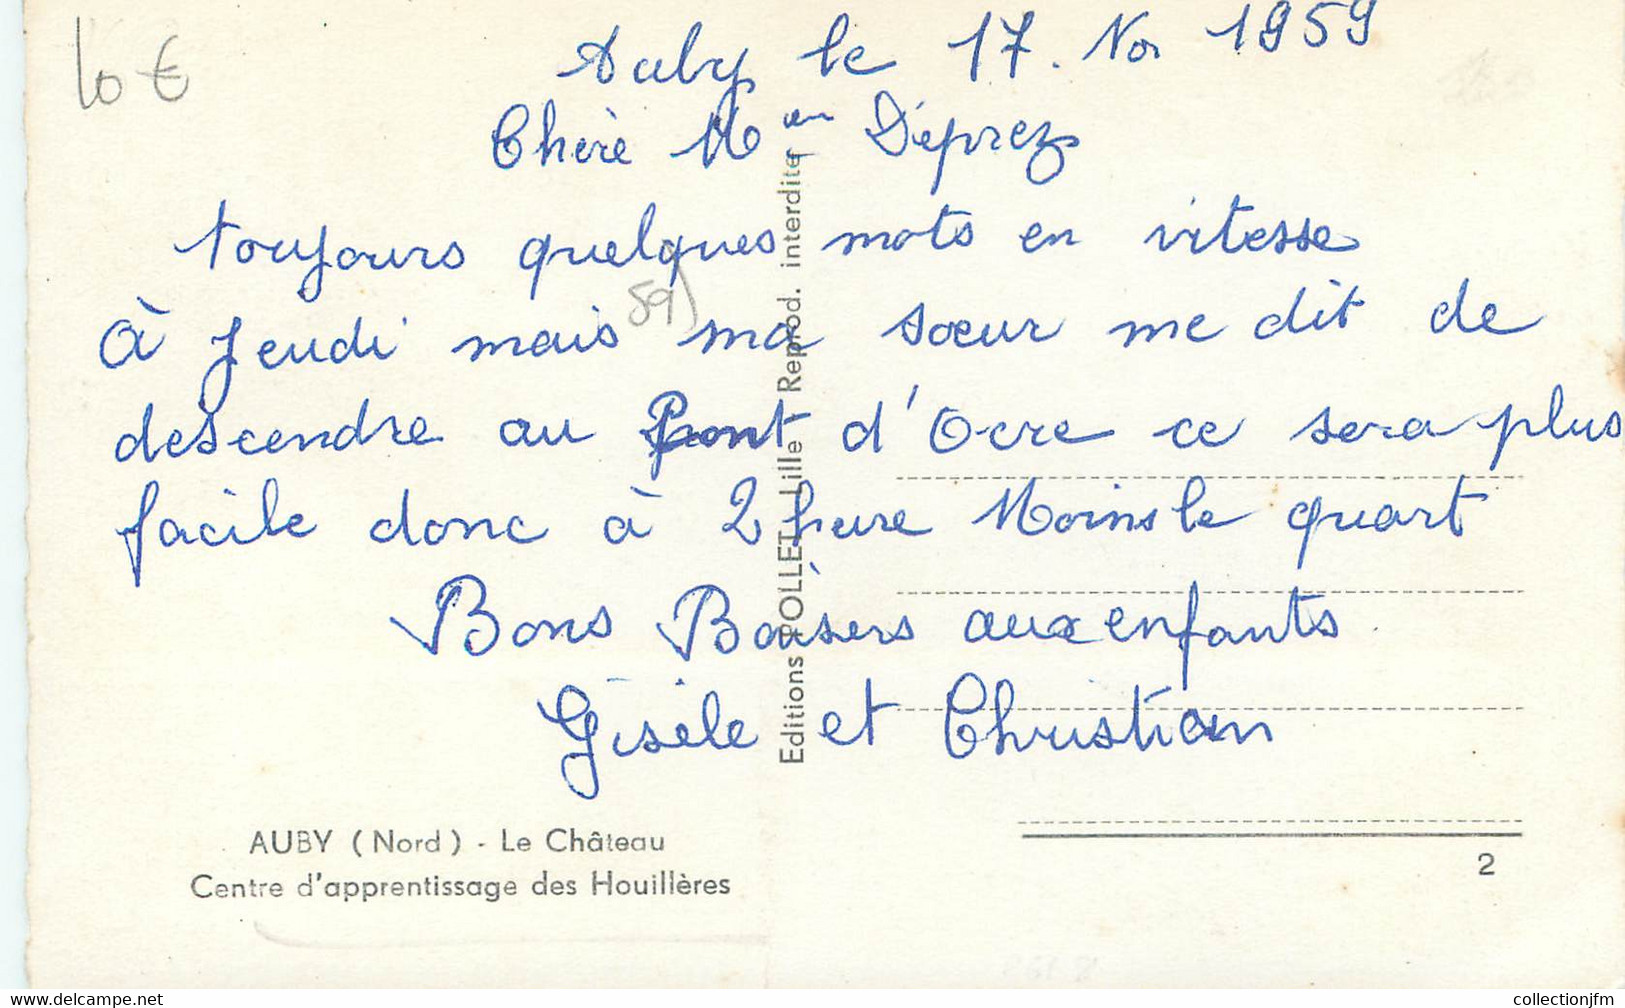 10 €
Auby le 17. Nov 1959
Chère M en Déprez
toujours quelques mots en vitesse
À Jeudi mais ma sœur me dit de
59)
descendre au Pont d'Ocre ce sera plus
facile donc à 2 heure Moins le quart
Bons Baisers aux enfants.
Gisèle et Christian
Editions POLLET Lille Reprod. interdite
AUBY (Nord) - Le Château
Centre d'apprentissage des Houillères
2
www.delcampe.net
collectionjfm